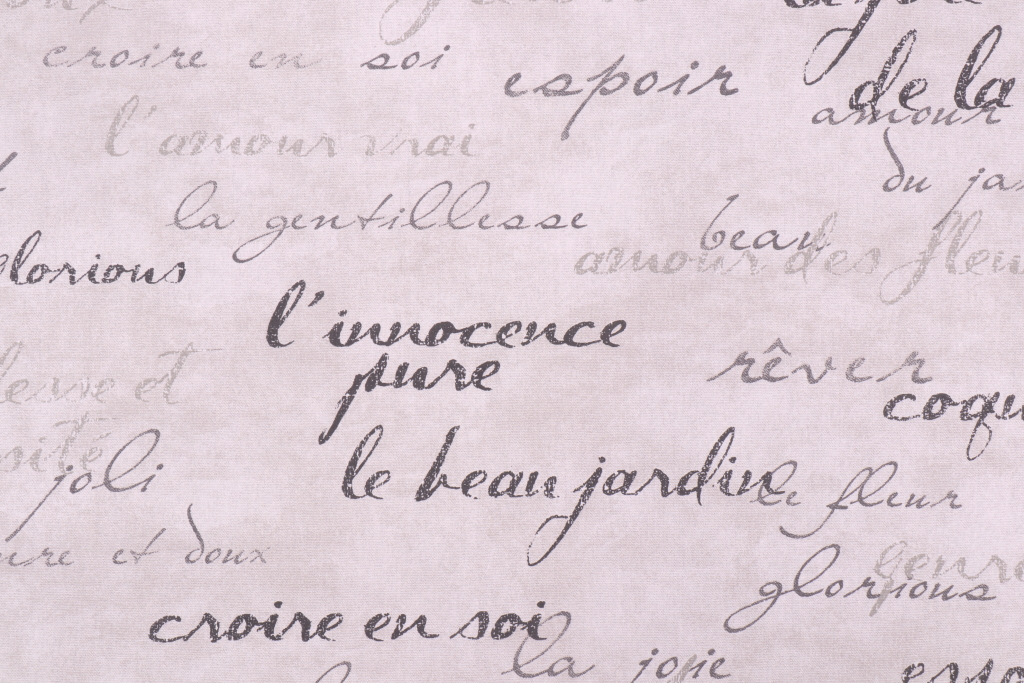 croire en soi
espoir
de la
amour
l'amour vrai
du
la gentillesse
beau
amour des fleur
glorious
l'innocence
pure
rêver
et
joli
le beau jardin
le fleur
et doux
glorious
croire en soi
la joie